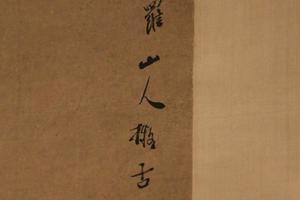 羅山人擬古